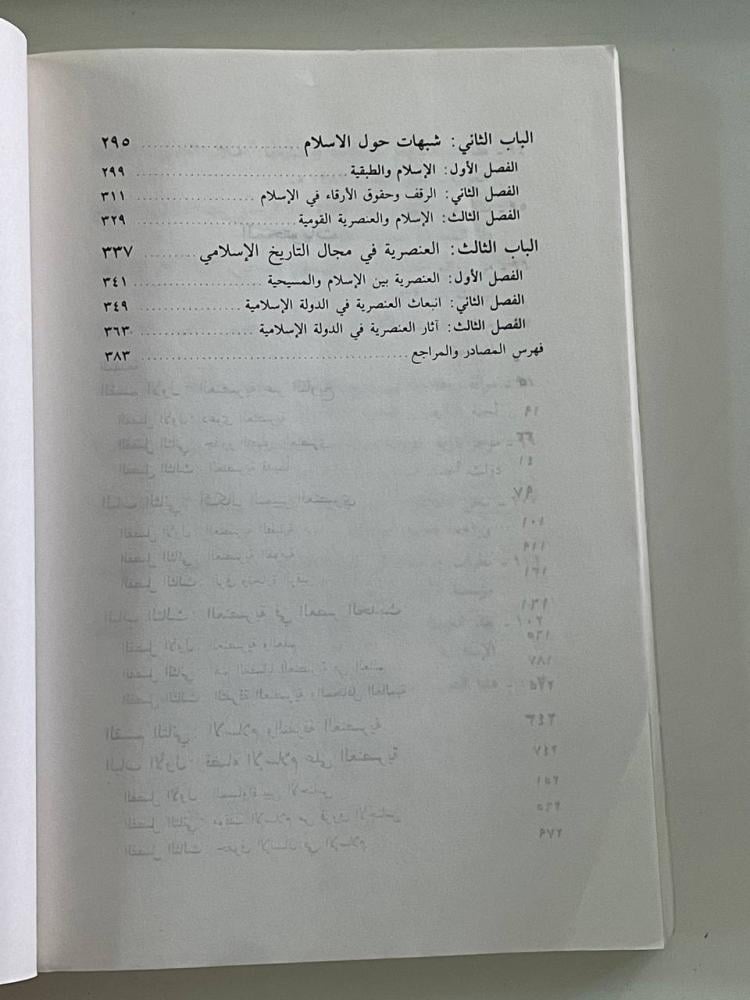 الباب الثاني: شبهات حول الاسلام ........ ٢٩٥
الفصل الأول: الإسلام والطبقية ........ ٢٩٩
الفصل الثاني: الرقف وحقوق الأرقاء في الإسلام ........ ٣١١
الفصل الثالث: الإسلام والعنصرية القومية ........ ٣٢٩
الباب الثالث: العنصرية في مجال التاريخ الإسلامي ........ ٣٣٧
الفصل الأول: العنصرية بين الإسلام والمسيحية ........ ٣٤١
الفصل الثاني: انبعاث العنصرية في الدولة الإسلامية ........ ٣٤٩
الفصل الثالث: آثار العنصرية في الدولة الإسلامية ........ ٣٦٣
فهرس المصادر والمراجع ........ ٣٨٣